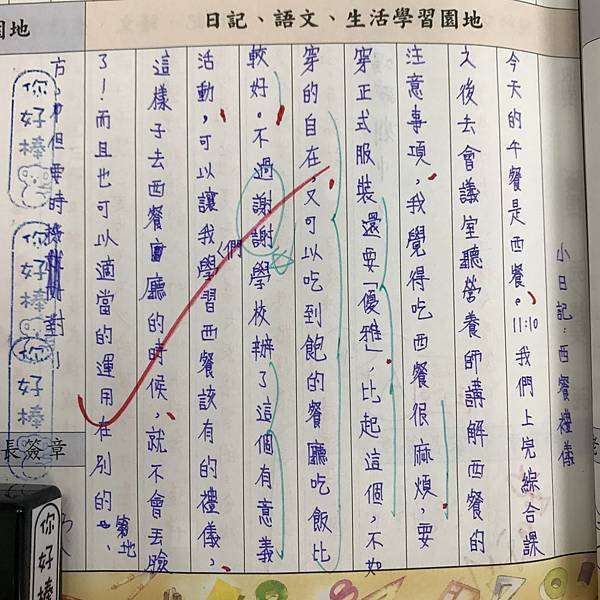 日記、語文、生活學習園地
小日記：西餐禮儀
今天的午餐是西餐。11:10我們上完綜合課
之後去會議室聽營養師講解西餐的
注意事項，我覺得吃西餐很麻煩，要
穿正式服裝還要「優雅」，比起這個，不如
穿的自在，又可以吃到飽的餐廳吃飯比
較好。不過謝謝學校辦了這個有意義
活動，可以讓我們學習西餐該有的禮儀，
這樣子去西餐廳的時候，就不會丟臉
了！而且也可以適當的運用在別的
地
方
園地
你好棒
你好棒
你好棒
長簽章
你好棒